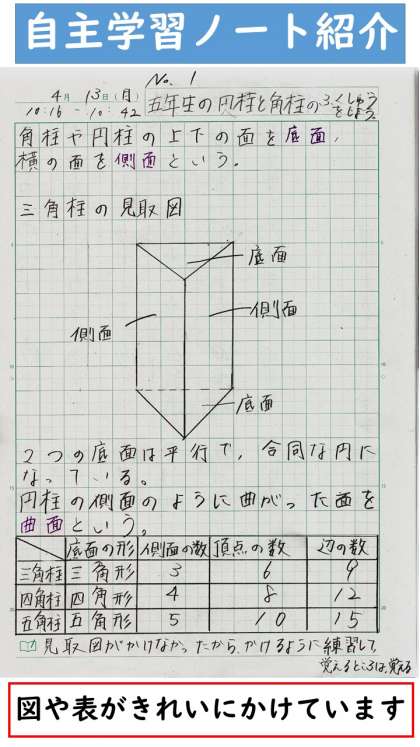 自主学習ノート紹介
No. 1
4月 13日(月)
10:16 - 10:42
五年生の円柱と角柱のふくしゅうをしよう。
角柱や円柱の上下の面を底面,
横の面を側面という。
三角柱の見取図
底面
側面
側面
底面
2つの底面は平行で,合同な円に
なっている。
円柱の側面のように曲がった面を
曲面という。
底面の形 側面の数 頂点の数 辺の数
三角柱 三角形 3 6 9
四角柱 四角形 4 8 12
五角柱 五角形 5 10 15
見取図がかけなかったから、かけるように練習して、
覚えるところは、覚える
図や表がきれいにかけています